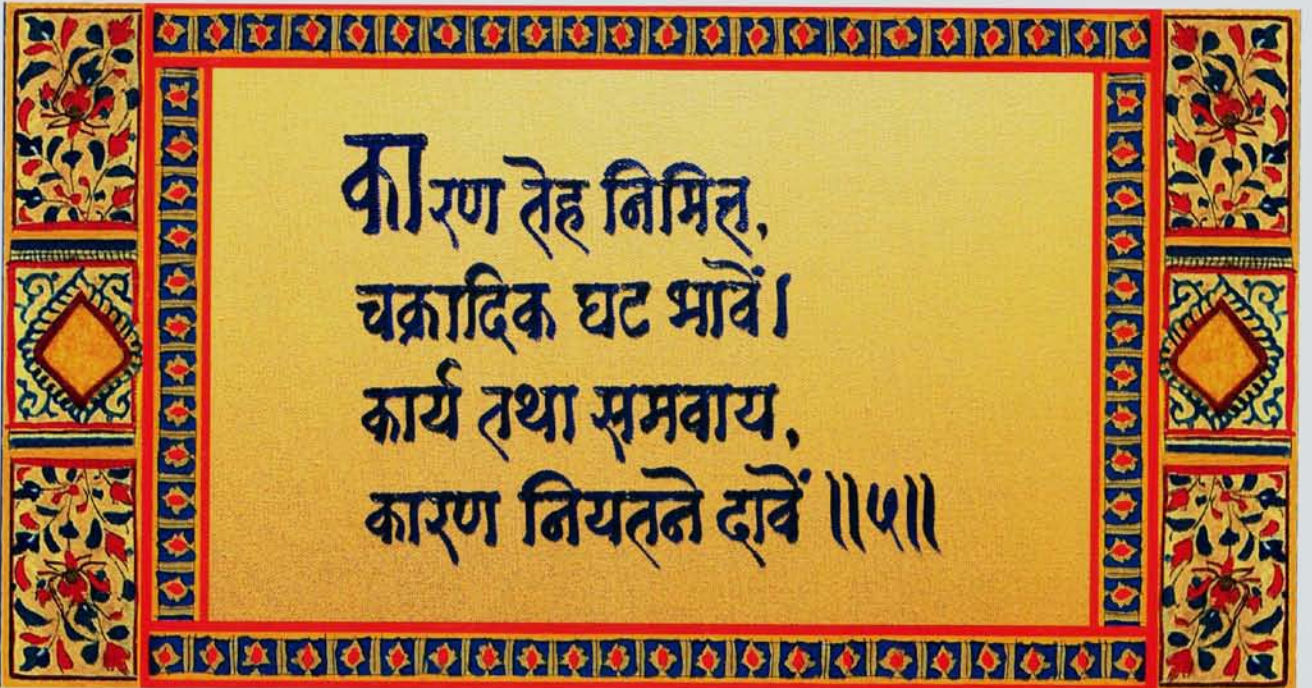 कारण तेह निमित्त,
चक्रादिक घट भावें।
कार्य तथा समवाय,
कारण नियतने दावें ॥५॥